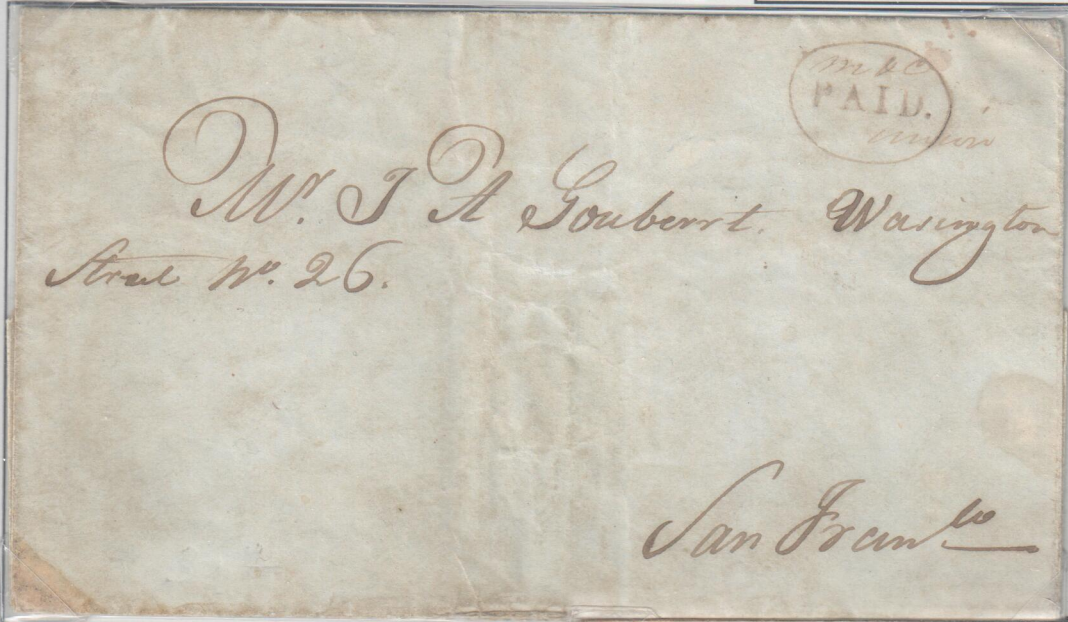 PAID.
Mr. J A Gouberrt. Wasington
Street No. 26.
San Franco